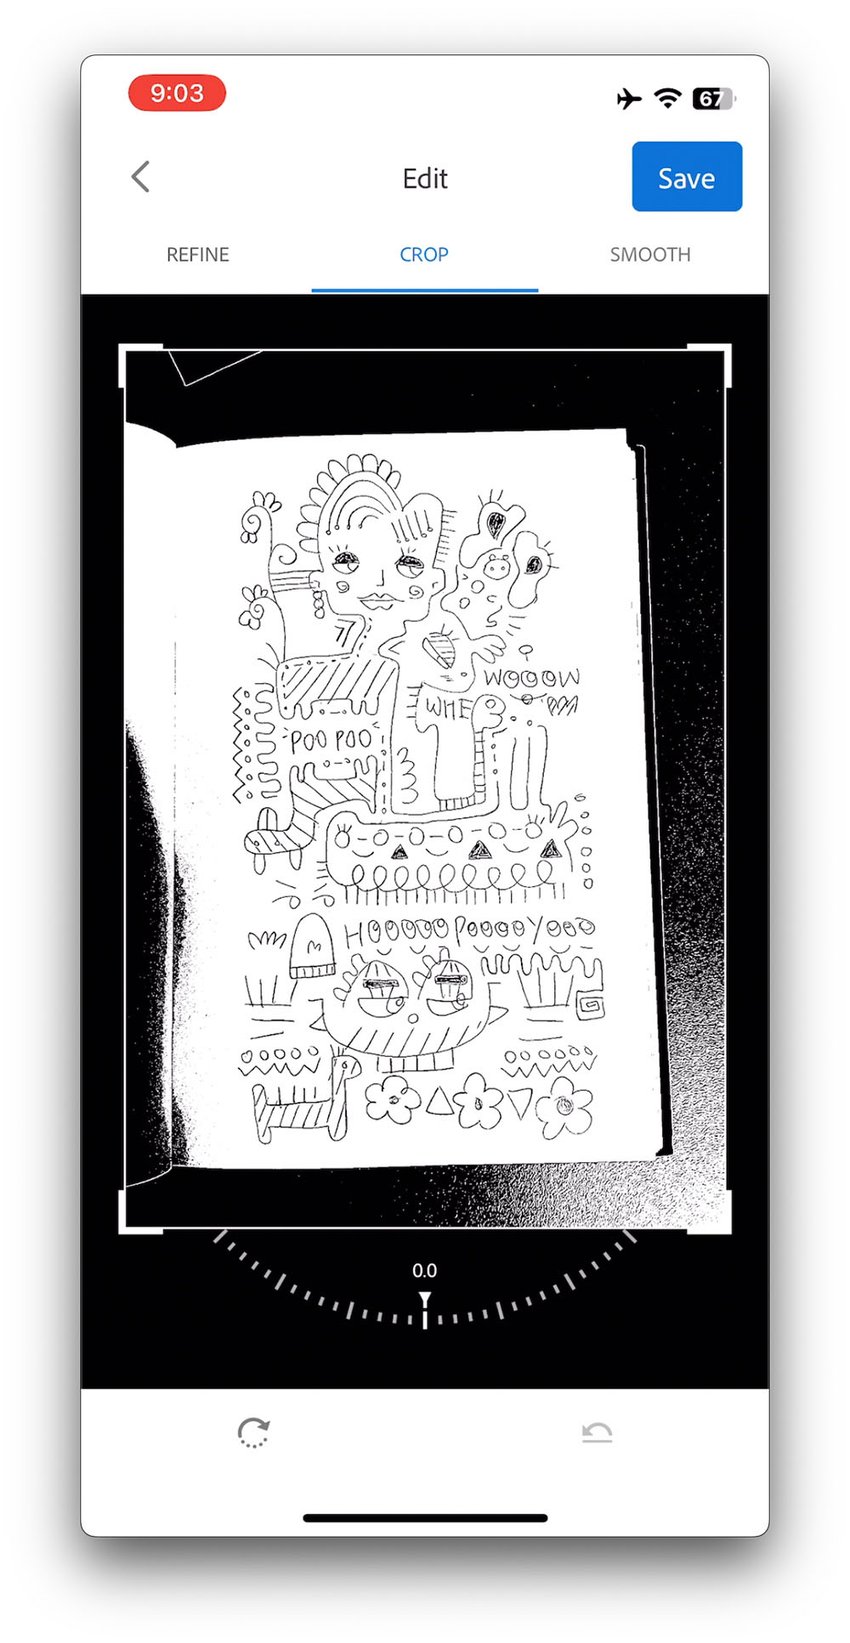 9:03
67
Edit
Save
REFINE
CROP
SMOOTH
WOOOW
WHE
POO POO
HOOOOO POOOOYOOO
0.0